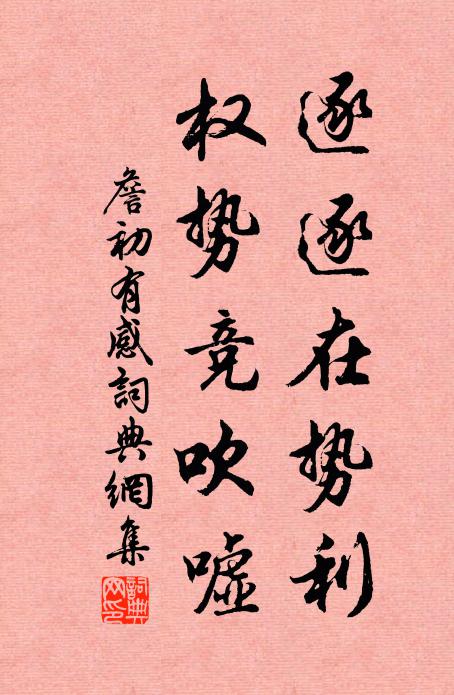 逐逐在势利
权势竞吹嘘
詹初有感詞典網集
詞典网印